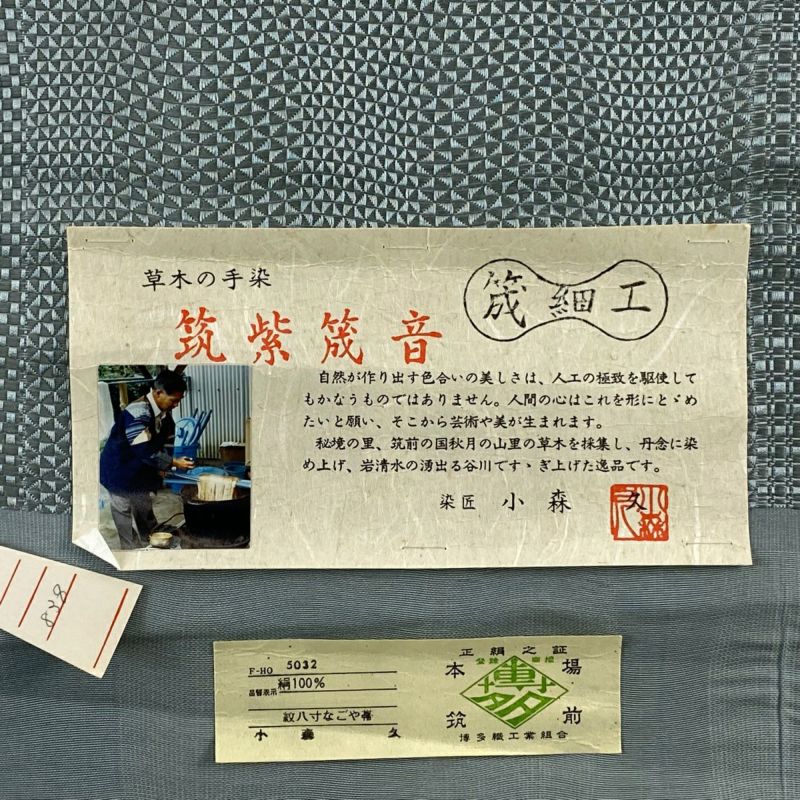 草木の手染
筬細工
筑紫筬音
自然が作り出す色合いの美しさは、人工の極致を駆使して
もかなうものではありません。人間の心はこれを形にとゞめ
たいと願い、そこから芸術や美が生まれます。
秘境の里、筑前の国秋月の山里の草木を採集し、丹念に染
め上げ、岩清水の湧出る谷川ですゝぎ上げた逸品です。
染匠 小森 久
838
F-HO 5032
品質表示 絹100%
紋八寸なごや帯
小森 久
正絹之証
登録 商標
本場
博多
筑前
博多織工業組合